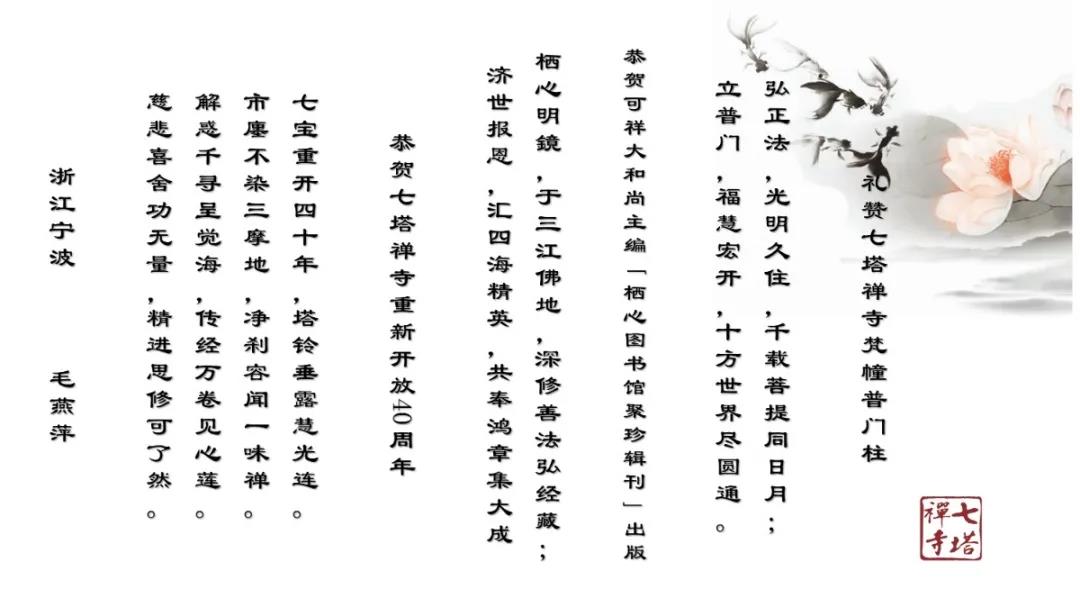 礼赞七塔禅寺梵幢普门柱
弘正法，光明久住，千载菩提同日月；
立普门，福慧宏开，十方世界尽圆通。
恭贺可祥大和尚主编「栖心图书馆聚珍辑刊」出版
栖心明镜，于三江佛地，深修善法弘经藏；
济世报恩，汇四海精英，共奉鸿章集大成
恭贺七塔禅寺重新开放40周年
七宝重开四十年，塔铃垂露慧光连。
市廛不染三摩地，净刹容闻一味禅。
解惑千寻呈觉海，传经万卷见心莲。
慈悲喜舍功无量，精进思修可了然。
浙江宁波 毛燕萍
七塔
禪寺